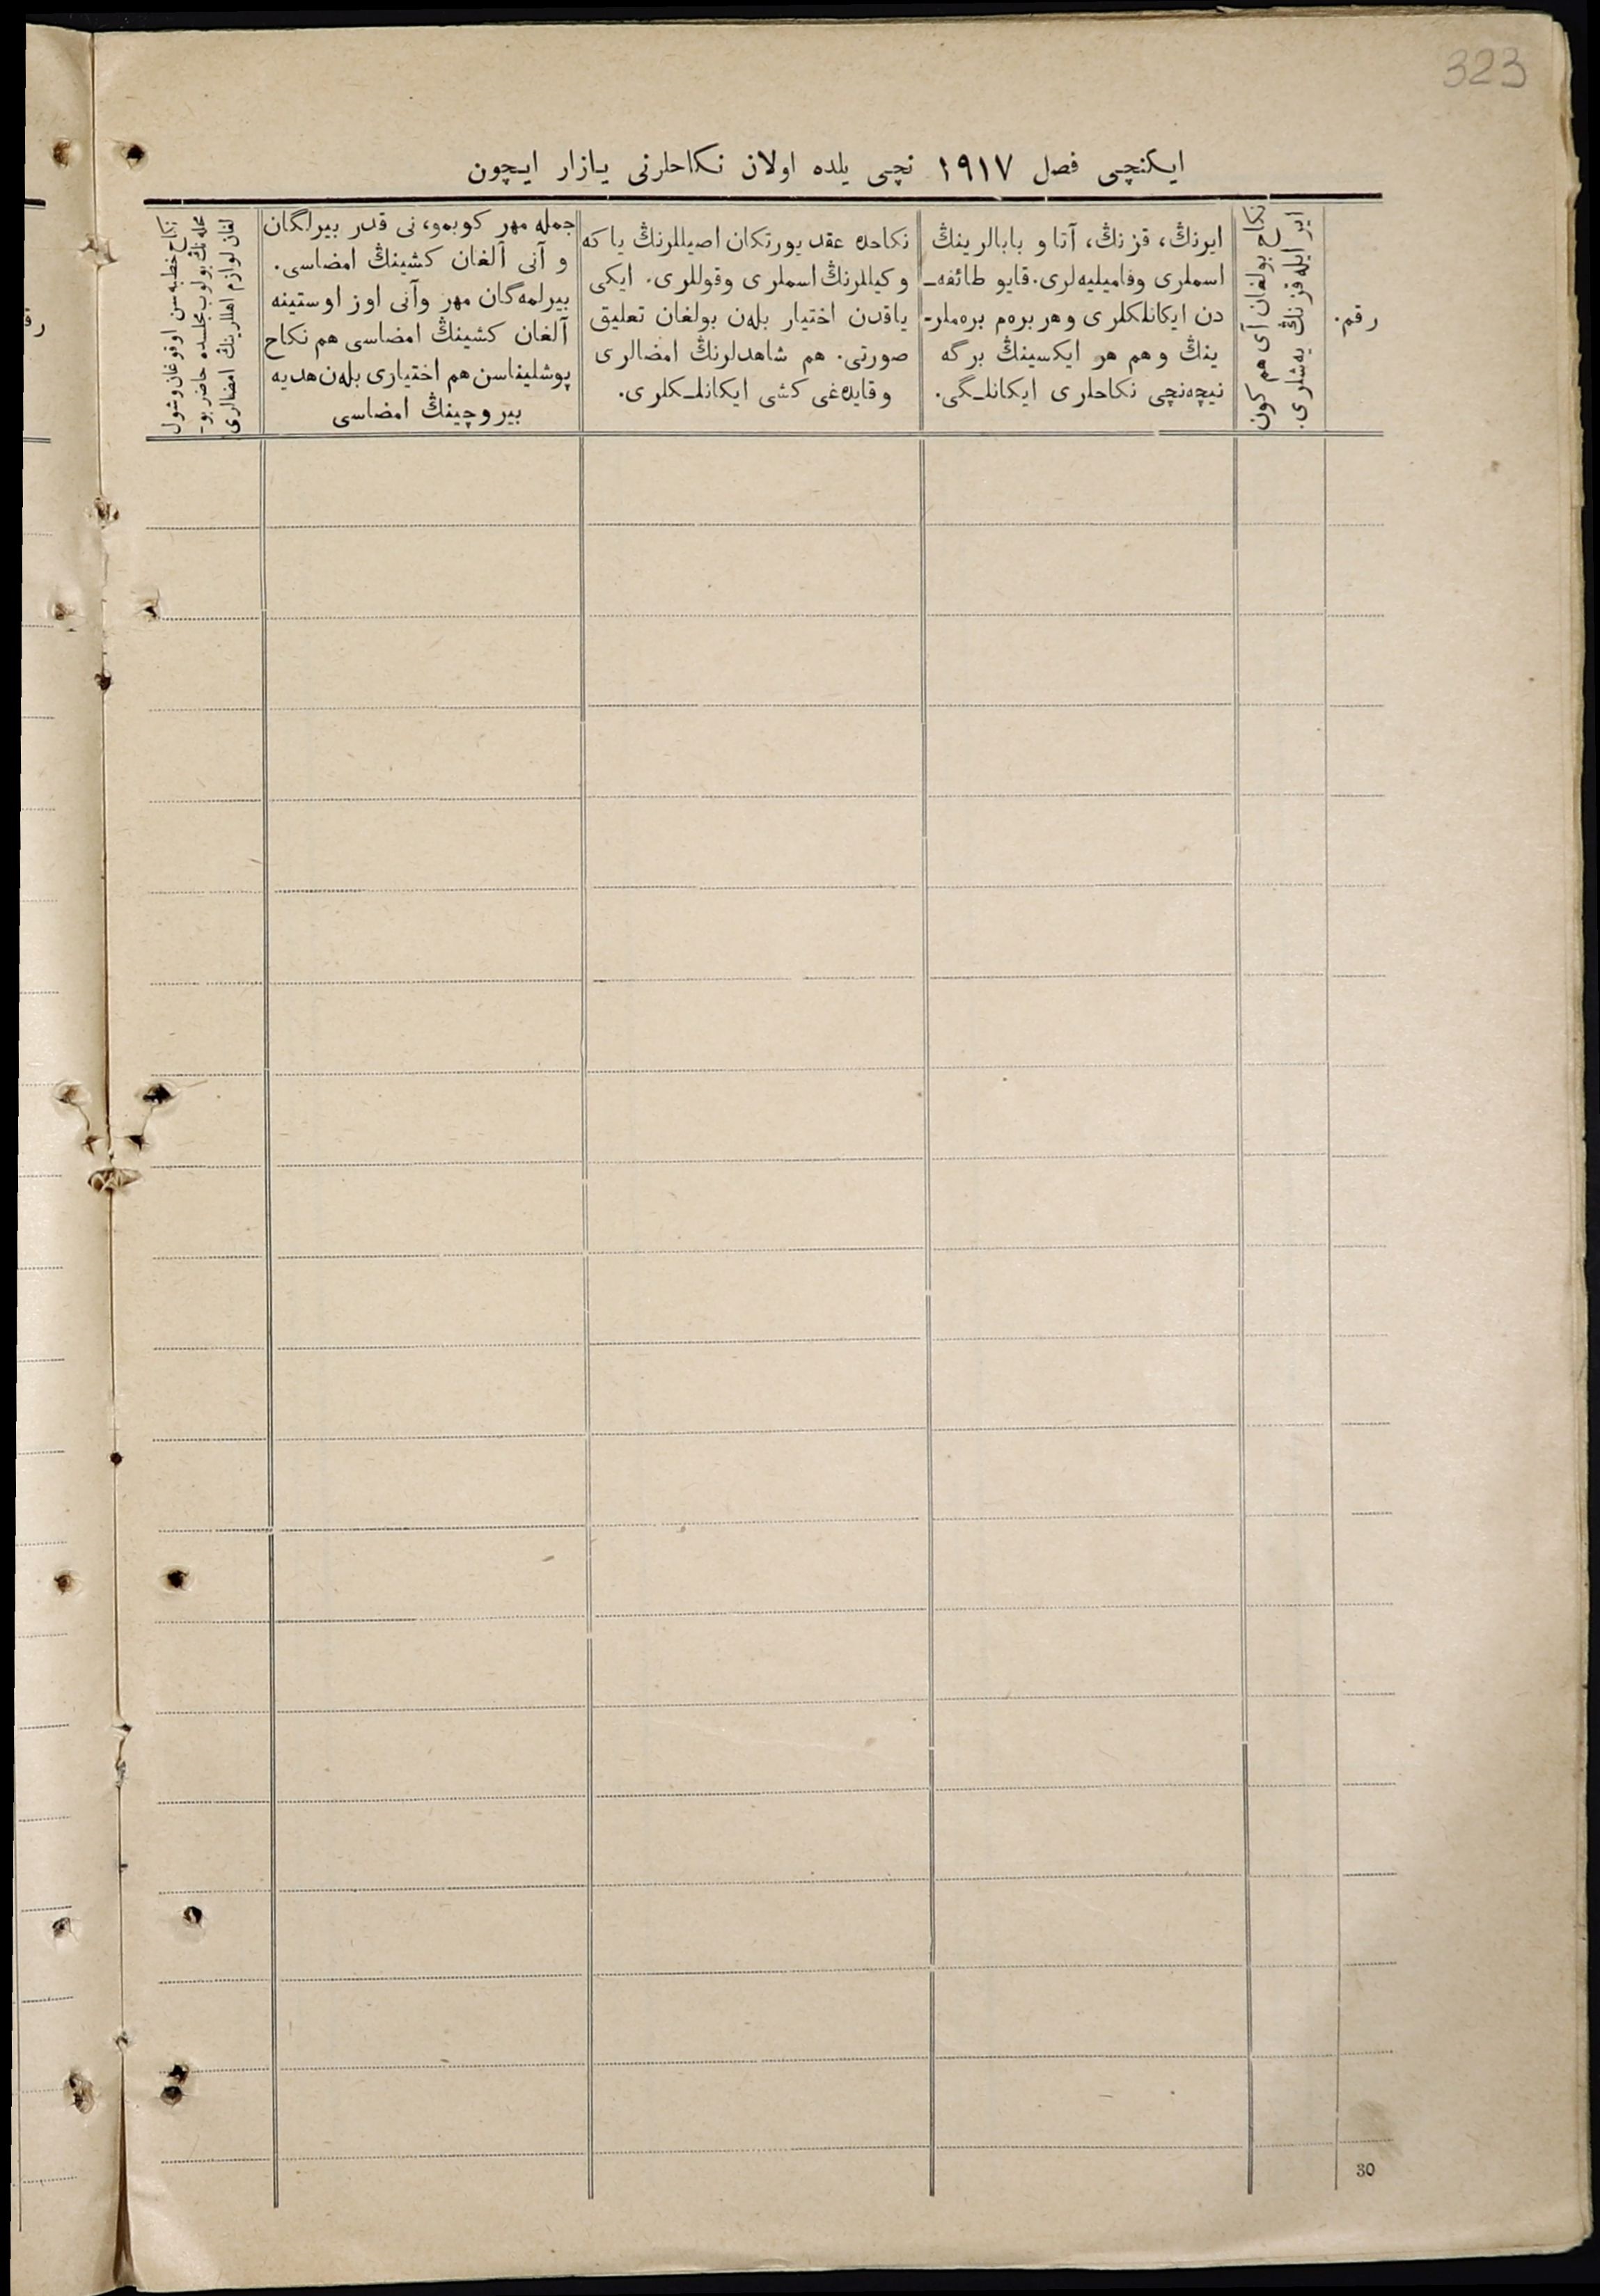 323
ایکنچی فصل ١٩١٧ نچی یلده اولان نکاحلرنی یازار ایچون
رقم.
نکاح بولغان آی هم کون
ایر ایله قزنڭ یه‌شلری.
ایرنڭ، قزنڭ، آتا و بابالرینڭ
اسملری وفامیلیه‌لری. قایو طائفه‌ـ
دن ایکانلکلری وهر بره‌م بره‌ملر-
ینڭ وهم هر ایکسینڭ برگه
نیچه‌نچی نکاحلری ایکانلـگی.
نکاحده عقد یورتکان اصیللرنڭ یا که
وکیللرنڭ اسملری وقوللری. ایکی
یاقدن اختیار بله‌ن بولغان تعلیق
صورتی. هم شاهدلرنڭ امضالری
وقایده‌غی کشی ایکانلـکلری.
جمله مهر کوبمو، نی قدر بیرلگان
و آنی آلغان کشینڭ امضاسی.
بیرلمه‌گان مهر وآنی اوز اوستینه
آلغان کشینڭ امضاسی هم نکاح
پوشلیناسن هم اختیاری بله‌ن هدیه
بیروچینڭ امضاسی
نکاح خطبه‌سن اوقوغان وشول
محله‌نڭ بولوب مجلسده حاضر بو-
لغان لوازم اهللرینڭ امضالری
رق
30